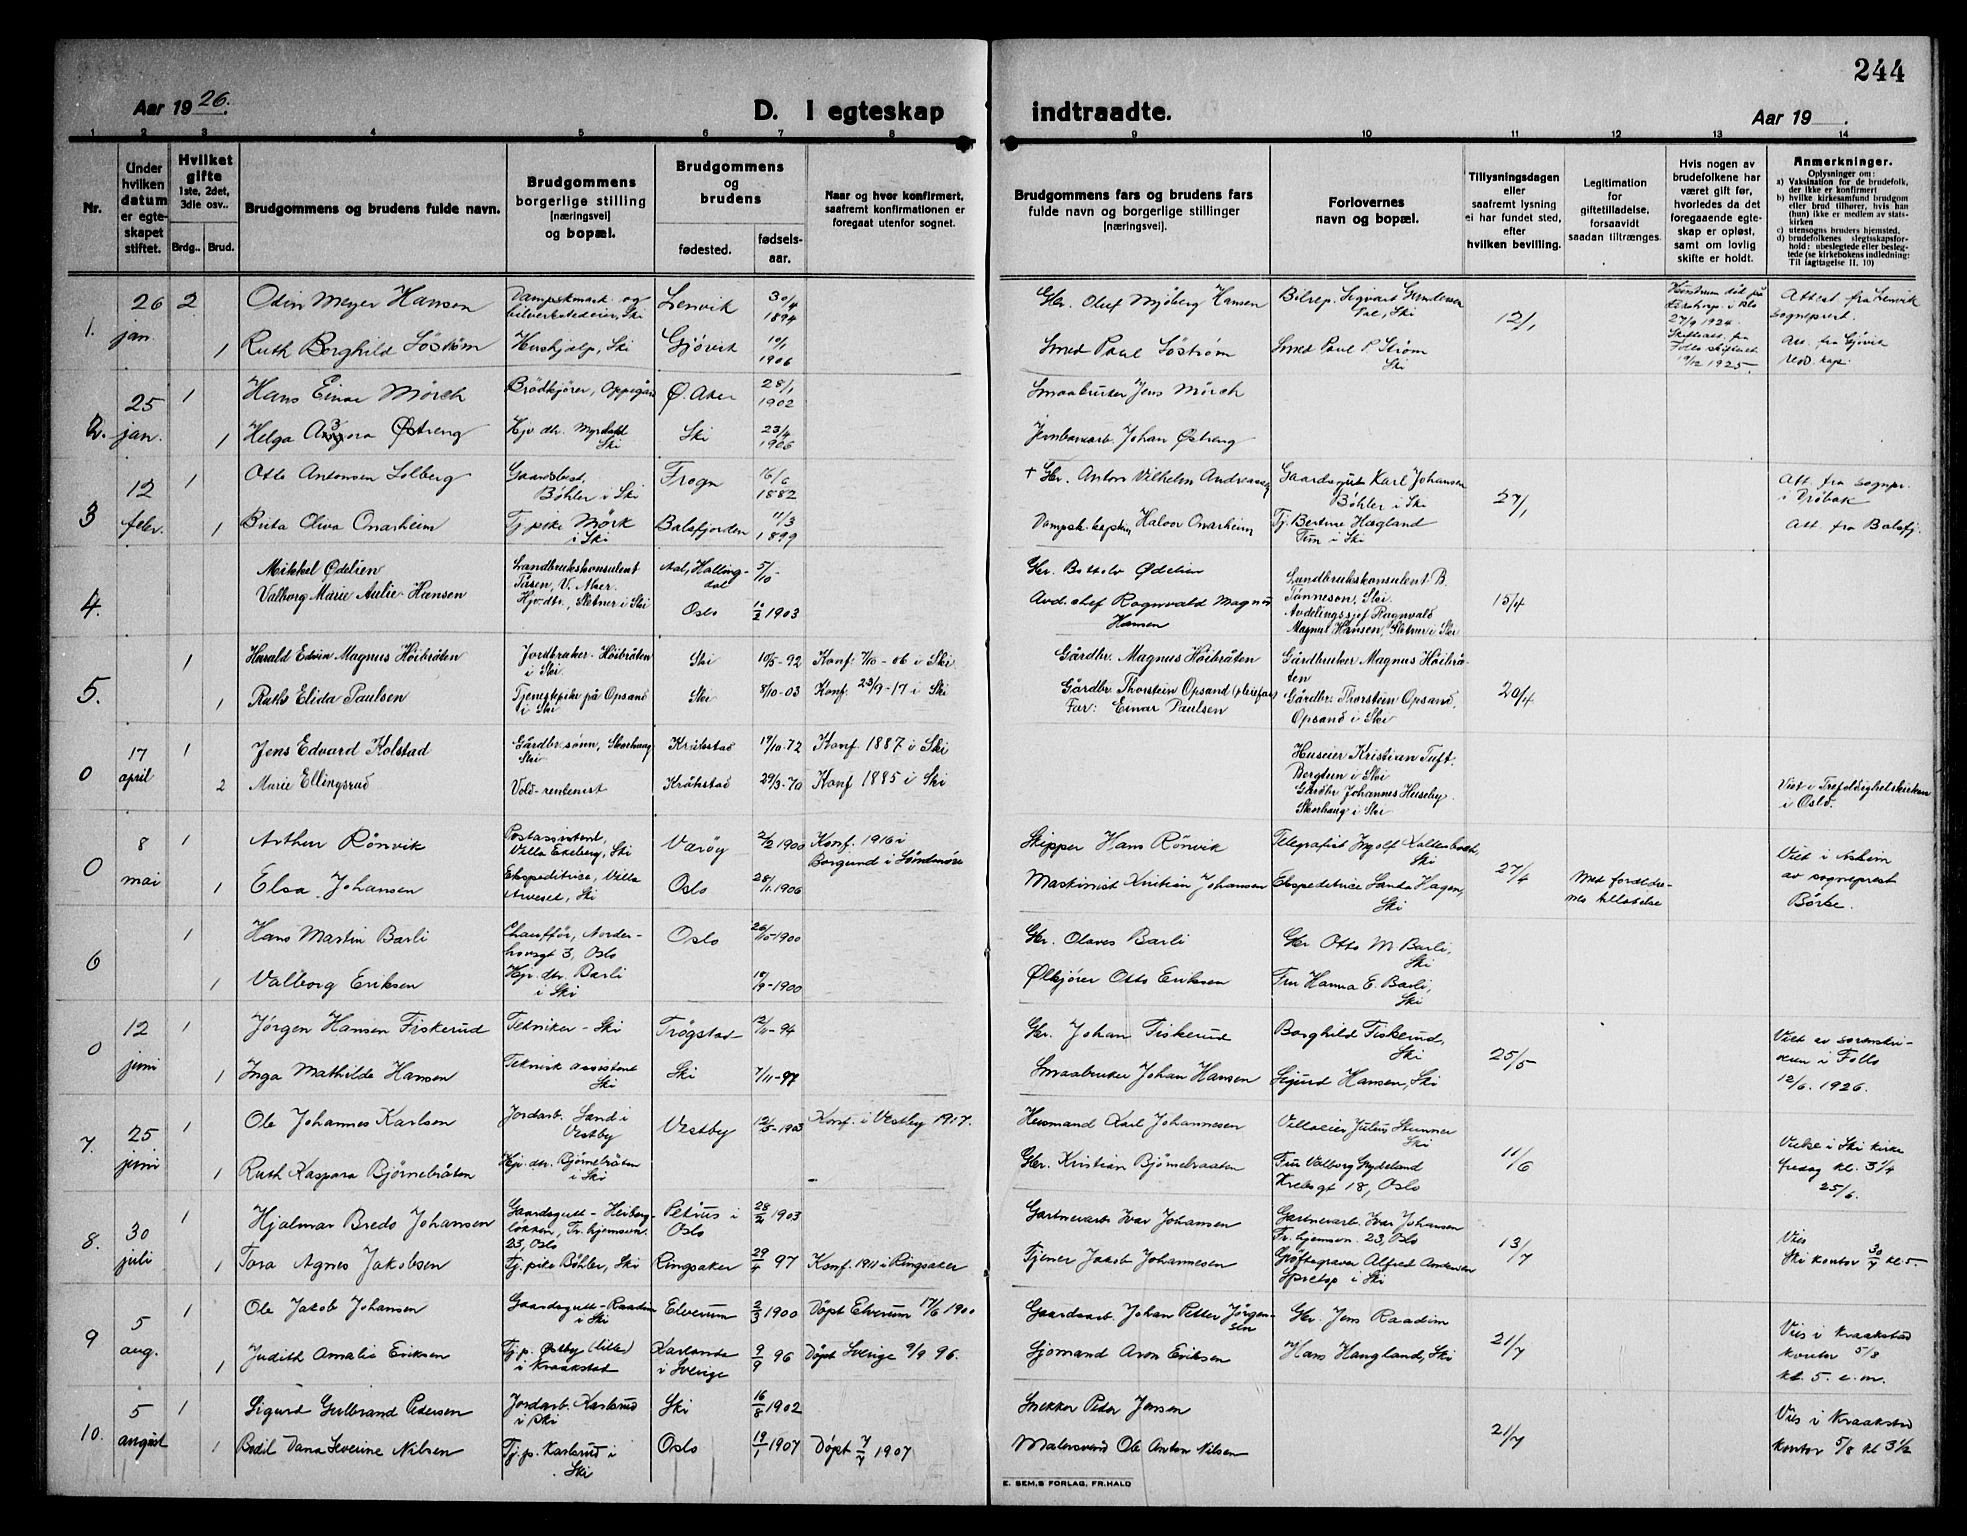 244
Aar 19 26.
D. I egteskap
indtraadte.
Aar 19
1 2 3 4 5 6 7 8 9 10 11 12 13 14
Nr.
Under hvilken datum er egte-skapet stiftet.
Hvilket gifte
1ste, 2det, 3die osv..
Brdg.. Brud.
Brudgommens og brudens fulde navn.
Brudgommens borgerlige stilling
[næringsvei]
og bopæl.
Brudgommens og brudens
fødested.
fødsels-aar.
Naar og hvor konfirmert, saafremt konfirmationen er foregaat utenfor sognet.
Brudgommens fars og brudens fars
fulde navn og borgerlige stillinger
[næringsvei].
Forlovernes
navn og bopæl.
Tillysningsdagen
eller
saafremt lysning
ei har fundet sted,
efter
hvilken bevilling.
Legitimation
for
giftetilladelse,
forsaavidt
saadan tiltrænges.
Hvis nogen av
brudefolkene har
været gift før,
hvorledes da det
foregaaende egte-
skap er opløst,
samt om lovlig
skifte er holdt.
Anmerkninger.
Oplysninger om:
a) Vaksination for de brudefolk,
der ikke er konfirmert
b) hvilke kirkesamfund brudgom
eller brud tilhører, hvis han
(hun) ikke er medlem av stats-
kirken
c) utensogns bruders hjemsted.
d) brudefolkenes slegtsskapsfor-
hold: ubeslegtede eller besleg-
tede (se kirkebokens indledning:
Til iagttagelse II. 10)
1. 26 jan. 2 Odin Meyer Hansen Lenvik 30/4 1894 Gbr. Oluf Myberg Hansen 12/1 Attest fra Lenvik sogneprest.
1 Ruth Borghild Söström Hushjælp, Ski Gjövik 10/1 1906 Smed Paul Söström Smed Paul P. Ström Ski
27/9 1924.
19/12 1925.
Att. fra Gjövik
2. 25 jan. 1 Hans Einar Mörch Brödkjörer, Oppegård Ø. Aker 28/1 1902 Smaabruker Jens Mörch
1 Helga Østreng Hjv. dtr. Ski Ski 23/4 1906 Johan Østreng
3 12 febr. 1 Otto Antonsen Solberg Bøhler i Ski Frogn 16/6 1882 + Gbr. Anton Vilhelm Andreassen Gaardsgut Karl Johansen Bøhler i Ski 27/1 Att. fra sognepr. i Drøbak
1 Brita Oliva Onarheim Tj. pike Mörk i Ski Balsfjorden 11/3 1899 Dampsk. kaptein Halvor Onarheim Tj. Bertine Hægland i Ski Att. fra Balsfj.
4. Mikkel Ødelien Landbrukskonsulent V. Aker. Aal, Halling-dal 5/10 Gbr. Bottolv Ødelien Landbrukskonsulent B. Tönneson, Ski. 15/4
Valborg Marie Aulie Hansen Hjv. dtr., Sletner i Ski Oslo 10/2 1903 Avd. chef Ragnvald Magnus Hansen Avdelingssjef Ragnvald Magnus Hansen, Sletner i Ski
5. 1 Harald Edvin Magnus Höibråten Jordbruker - Höibråten i Ski Ski 10/5-92 Konf. 7/10-06 i Ski Gårdbr. Magnus Höibråten Gårdbruker Magnus Höibrå-ten 20/4
1 Ruth Elida Paulsen Tjenestepike på Opsand i Ski Ski 8/10-03 Konf. 23/9-17 i Ski Gårdbr. Thorstein Opsand (pleiefar) Far: Einar Paulsen Gårdbr. Thorstein Opsand, Opsand i Ski
0 17 april 1 Jens Edvard Kolstad Gårdbr.sönn, Skorhaug Ski Kråkstad 19/10-72 Konf. 1887 i Ski Huseier Kristian Tuft. Bergtun i Ski
2 Marie Ellingsrud Vold - rentenist Kråkstad 29/3-70 Konf 1885 i Ski Gårdbr Johannes Huseby. Skorhaug i Ski Viet i Trefoldighetskirken i Oslo.
0 8 mai 1 Arthur Rönvik Postassistent, Villa Ekeberg, Ski Værøy 2/2 1900 Konf. 1916 i Borgund i Söndmöre Skipper Hans Rönvik Telegrafist Ingolf Kaltenborn, Ski 27/4 Viet i Askim av sogneprest Börke.
1 Elsa Johansen Ekspeditrice, Villa Arveset, Ski Oslo 28/1 1906 Maskinist Kristian Johansen Ekspeditrice Santa Hagen, Ski Med foreldre-nes tillatelse
6 1 Hans Martin Barli Chauffør, Norder-hovsgt 3, Oslo Oslo 26/10-1900 Gbr. Olaves Barli Gbr Otto M. Barli, Ski
1 Valborg Eriksen Hjv. dtr. Barli i Ski 10/9-1900 Ølkjörer Otto Eriksen Fru Hanna E. Barli, Ski
0 12 juni 1 Jörgen Hansen Fiskerud Tekniker - Ski Trögstad 12/11-94 Gbr. Johan Fiskerud Borghild Fiskerud, Ski 25/5 Viet av sorenskri-veren i Follo 12/6. 1926.
1 Inga Mathilde Hansen Teknisk assistent Ski Ski 7/11-97 Smaabruker Johan Hansen Sigurd Hansen, Ski
7. 25 juni 1 Ole Johannes Karlsen Jordarb. Sand i Vestby Vestby 12/5-1903 Konf. i Vestby 1917. Husmand Karl Johannesen Villaeier Julius Stunner Ski 11/6 Vielse i Ski kirke fredag kl. 3 1/4 25/6.
1 Ruth Kaspara Björnebråten Hjv. dtr. Björnebråten i Ski Gbr. Kristian Björnebraaten Fru Valborg Gydeland Krebsgt 18, Oslo
8. 30 juli 1 Hjalmar Bredo Johansen Gaardsgutt - Heiberg-løkken, Tr. hjemsvn. 23, Oslo Petrus i Oslo 28/2 1903 Gartnerarb. Ivar Johansen Gartnerarb. Ivar Johansen Tr. hjemsvn. 23, Oslo 13/7 Vies Ski kontor 30/7 kl. 5.
1 Tora Agnes Jakobsen Tj. pike Böhler, Ski Ringsaker 29/4 97 Konf. 1911 i Ringsaker Tjener Jakob Johannesen Grøftegraver Alfred Andersen i Ski
9 5 aug. 1 Ole Jakob Johansen Gaardsgutt - Raadim i Ski Elverum 2/3 1900 Döpt Elverum 17/6 1900 Gaardsarb. Johan Petter Jörgen-sen Gbr. Jens Raadim 21/7 Vies i Kraakstad kontor 5/8 kl. 5. e. m.
1 Judith Amalia Eriksen Tj. p. Østby (lille) i Kraakstad Karlanda i Sverige 9/9 96 Döpt Sverige 9/9 96. Sjømand Aron Eriksen Hans Haugland, Ski
10. 5 august 1 Sigurd Gulbrand Pedersen Jordarb. Karlsrud i Ski Ski 16/8 1902 Snekker Peder Jensen 21/7 Vies i Kraakstad kontor 5/8 kl 3 1/2
1 Bodil Dana Severine Nilsen Tj. p. Karlsrud i Ski Oslo 19/1 1907 Döpt 7/4 1907 Malersvend Ole Anton Nilsen
E. SEM,S FORLAG, FR.HALD